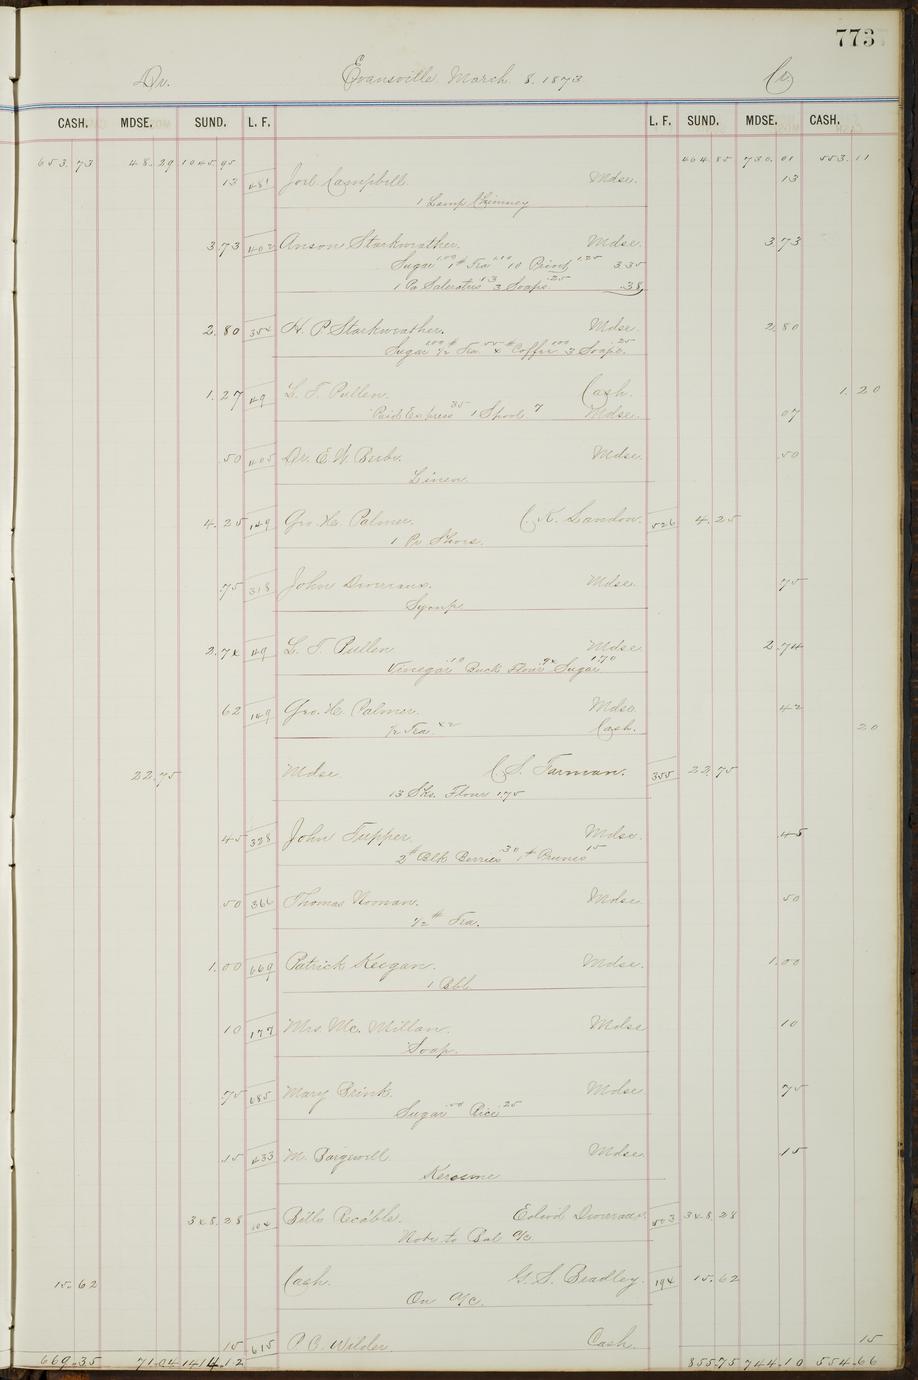 773
Dr. Evansville March 8, 1873 Cr
CASH. MDSE. SUND. L. F. L. F. SUND. MDSE. CASH.
653.73 48.29 1045.95 464.85 730.01 553.11
13 481 Joel Campbell Mdse. 13
1 Lamp Chimney
3.73 402 Anson Starkweather. Mdse 3.73
Sugar 1.00 1# Tea 1.10 10 Print 1.25 3.35
1 Pa Saleratus 13 3 Soaps .25 .38
2.80 354 H. P Starkweather. Mdse 2.80
Sugar 1.00 ½ # Tea 55 4 # Coffee 1.00 3 Soaps .25
1.27 49 L. T. Pullen. Cash. 1.20
Paid Express 35 1 Spool 7 Mdse. 07
.50 405 Dr. E. W. Beebe. Mdse .50
Linen
4.25 149 Geo. H. Palmer. C. K. Landon. 526 4.25
1 Pr Shoes.
.75 318 John Mdse. 75
Syrup
2.74 49 L. T. Pullen Mdse 2.74
Vinegar .10 Buck Flour 94 Sugar 1.70
62 149 Geo. H. Palmer. Mdse 42
½ Tea 42 Cash. 20
22.75 Mdse C. S. Turman. 355 22.75
13 Sks. Flour 1.75
45 328 John Tupper. Mdse. 45
2# Blk Berries .30 1# Prunes 15
50 366 Thomas Noonan. Mdse 50
½ # Tea.
1.00 669 Patrick Keegan. Mdse. 1.00
1 Bbl
10 177 Mrs. Mc. Millan. Mdse 10
Soap.
75 685 Mary Brink. Mdse 75
Sugar 50 Rice 25
15 433 M. Mdse 15
Kerosene
348.28 104 Bills Rec'able. 503 348.28
Note to Bal a/c
15.62 Cash. G. S. Bradley. 194 15.62
On a/c.
15 615 P. C. Wilder. Cash 15
669.35 71.04 1414.12 855.75 744.10 554.66